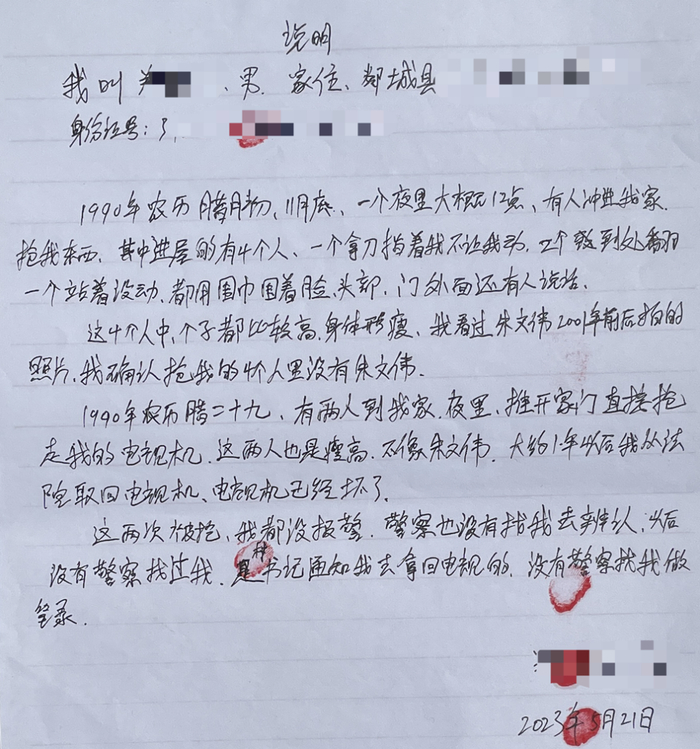 说明
我叫 、男、家住、郯城县
身份证号：3
1990年农历腊月初、11月底、一个夜里大概12点、有人冲进我家
抢我东西、其中进屋的有4个人、一个拿刀指着我不让我动、2个 到处翻
一个站着没动、都用围巾围着脸、头部、门外面还有人说话、
这4个人中、个子都比较高、身体 瘦、我看过朱文伟2001年前后拍的
照片、我确认抢我的4个人里没有朱文伟、
1990年农历腊二十九、有两人到我家、夜里、推开家门直接抢
走我的电视机、这两人也是瘦高、不像朱文伟、大约1年以后我从法
院取回电视机、电视机已经坏了、
这两次被抢、我都没报警、警察也没有找我去辨认、以后
没有警察找过我、是村书记通知我去拿回电视的、没有警察找我做
笔录、
2023年5月21日